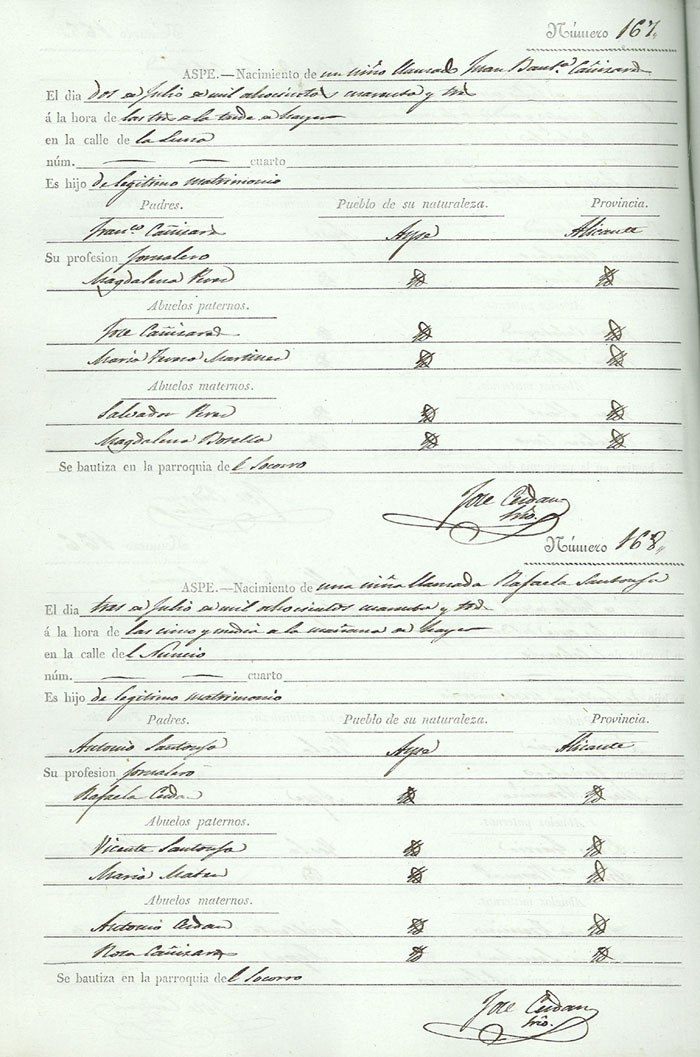 Número 167.
ASPE.—Nacimiento de un niño llamado Juan Baut.ª Cañizares
El dia dos de Julio de mil ahocientos cuarenta y tres
á la hora de las tres de la tarde de hayer
en la calle de la Luna
núm. cuarto
Es hijo de legitimo matrimonio
Padres. Pueblo de su naturaleza. Provincia.
Fran.co Cañizares Aspe Alicante
Su profesion Jornalero
Magdalena Perez Yd Yd
Abuelos paternos.
Jose Cañizares Yd Yd
Maria Martinez Yd Yd
Abuelos maternos.
Salvador Perez Yd Yd
Magdalena Botella Yd Yd
Se bautiza en la parroquia del Socorro
Jose Cerdan
Srio.
Número 168.
ASPE.—Nacimiento de una niña llamada Rafaela Santonja
El dia tres de Julio de mil ahocientos cuarenta y tres
á la hora de las cinco y media de la mañana de hayer
en la calle del Nuncio
núm. cuarto
Es hijo de legitimo matrimonio
Padres. Pueblo de su naturaleza. Provincia.
Antonio Santonja Aspe Alicante
Su profesion Jornalero
Rafaela Cerdan Yd Yd
Abuelos paternos.
Vicente Santonja Yd Yd
Maria Mateu Yd Yd
Abuelos maternos.
Antonio Cerdan Yd Yd
Rosa Cañizares Yd Yd
Se bautiza en la parroquia del Socorro
Jose Cerdan
Srio.